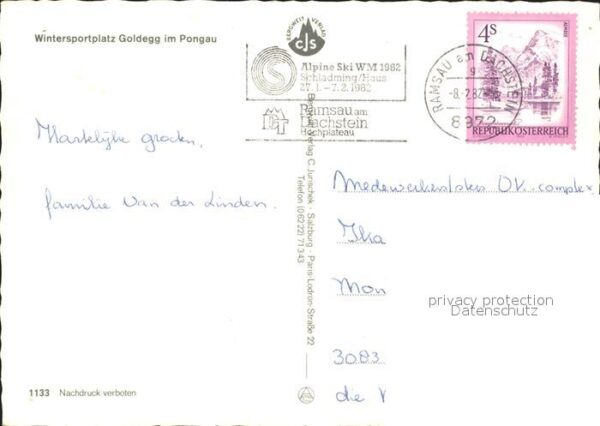 Wintersportplatz Goldegg im Pongau
BERGWELT VERLAG
cJs
Alpine Ski WM 1982
Schladming/Haus
27.1. – 7.2.1982
Ramsau am
Dachstein
Hochplateau
RAMSAU am DACHSTEIN
-8.-2.82
8972
4S
ALMSEE
REPUBLIK ÖSTERREICH
Hartelijke groeten,
familie Van der Linden.
Bergwelt-Verlag C. Jurischek · Salzburg · Paris-Lodron-Straße 22
Telefon (06222) 71343
OK-complex
Ika
3083
die
privacy protection
Datenschutz
1133 Nachdruck verboten